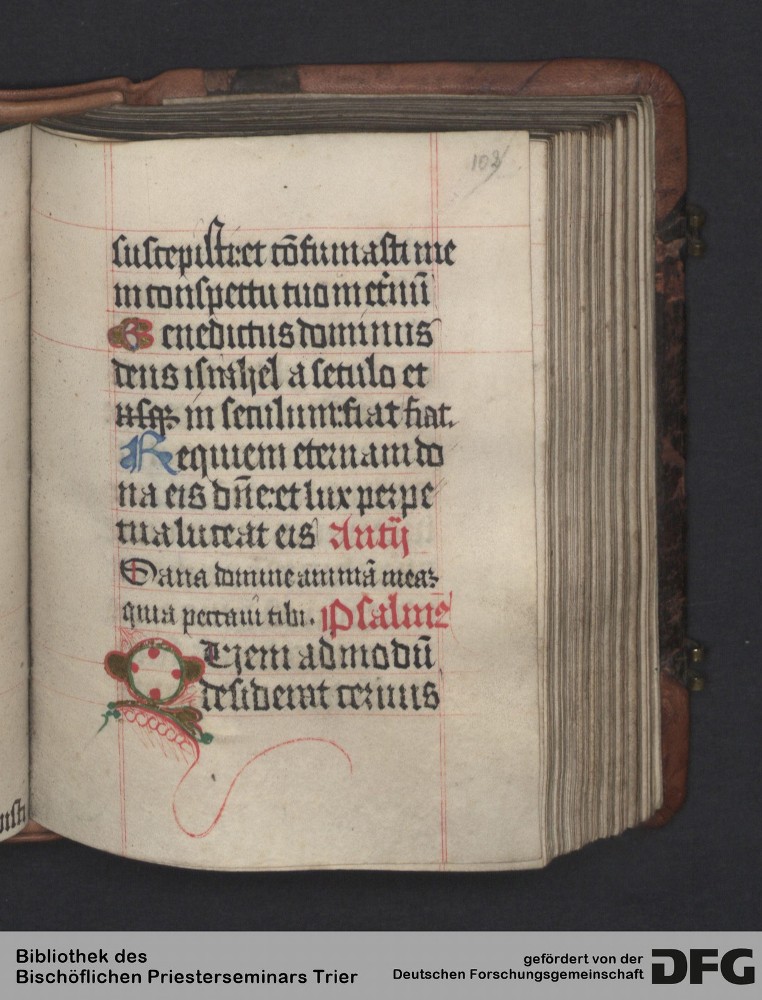 102
suscepisti: et cōfirmasti me
in conspectu tuo in etnū
Benedictus dominus
deus israhel a seculo et
usqz in seculum: fiat fiat.
Requiem eternam do
na eis dñe: et lux perpe
tua luceat eis Antiͫ
Sana domine animā meaz
quia peccavi tibi. Psalmꝰ
Quem admodū
desiderat cervus
Bibliothek des
Bischöflichen Priesterseminars Trier
gefördert von der
Deutschen Forschungsgemeinschaft
DFG